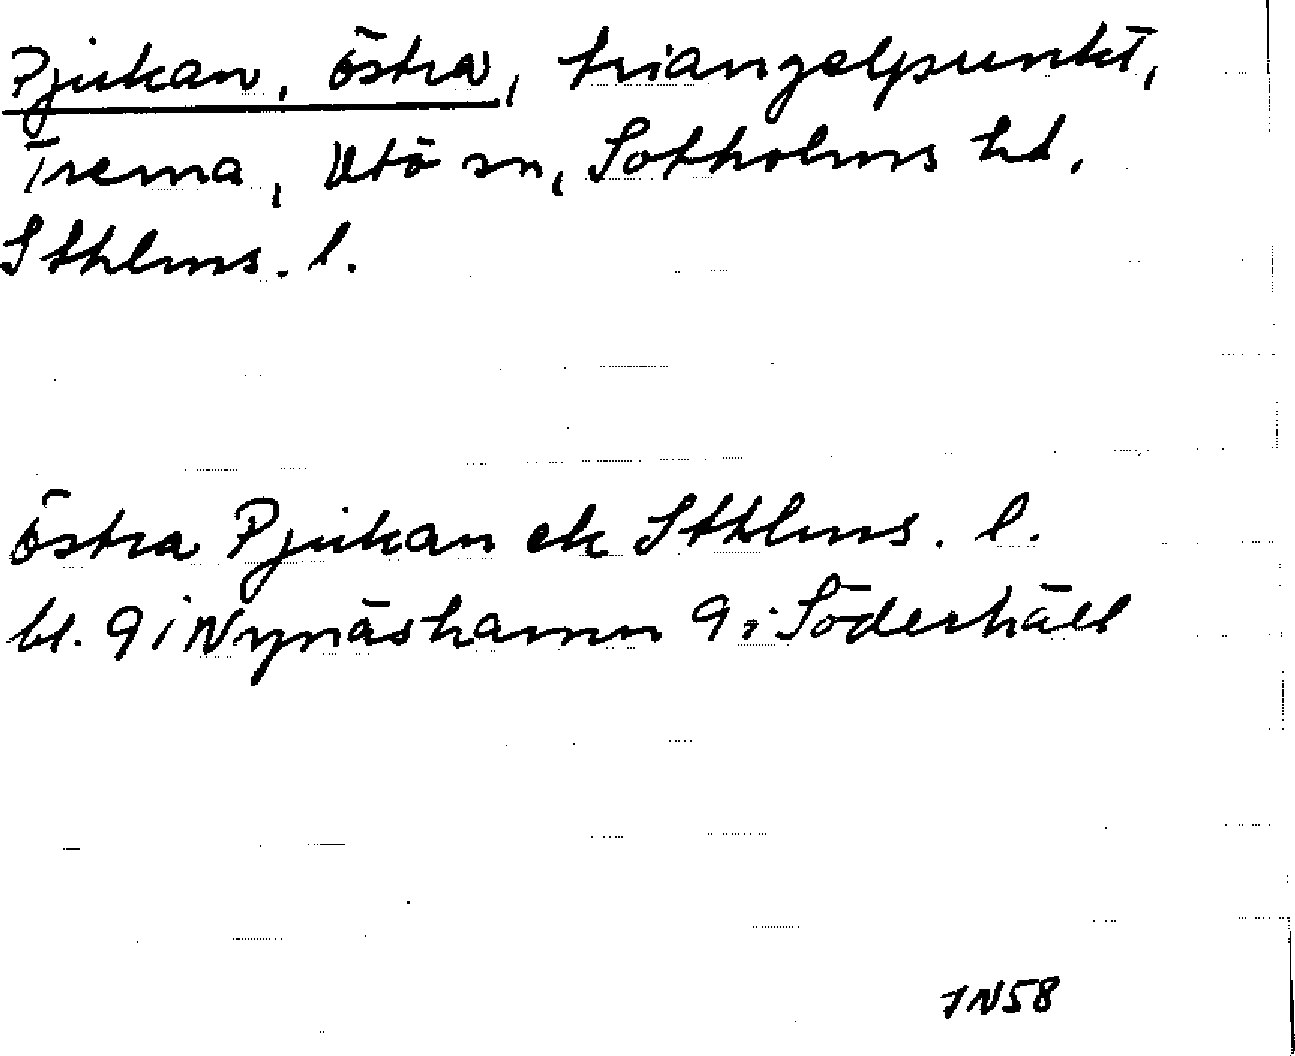 Pjukan, Östra, triangelpunkt,
Trema, Utö sn, Sotholms hd,
Sthlms. l.
Östra Pjukan ek Sthlms. l.
bl. 9 i Nynäshamn 9 i Söderhäll
JN58